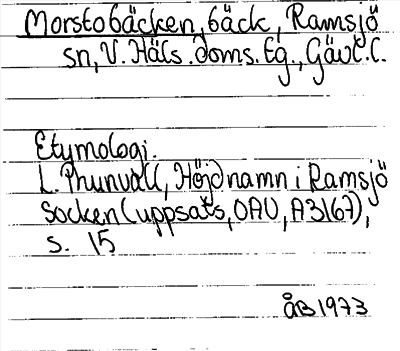 Morstobäcken, bäck, Ramsjö
sn, V. Häls. doms. tg., Gävl. l.
Etymologi.
L. Phunvall, Höjdnamn i Ramsjö
socken (uppsats, OAU, A3167),
s. 15
ÅB 1973